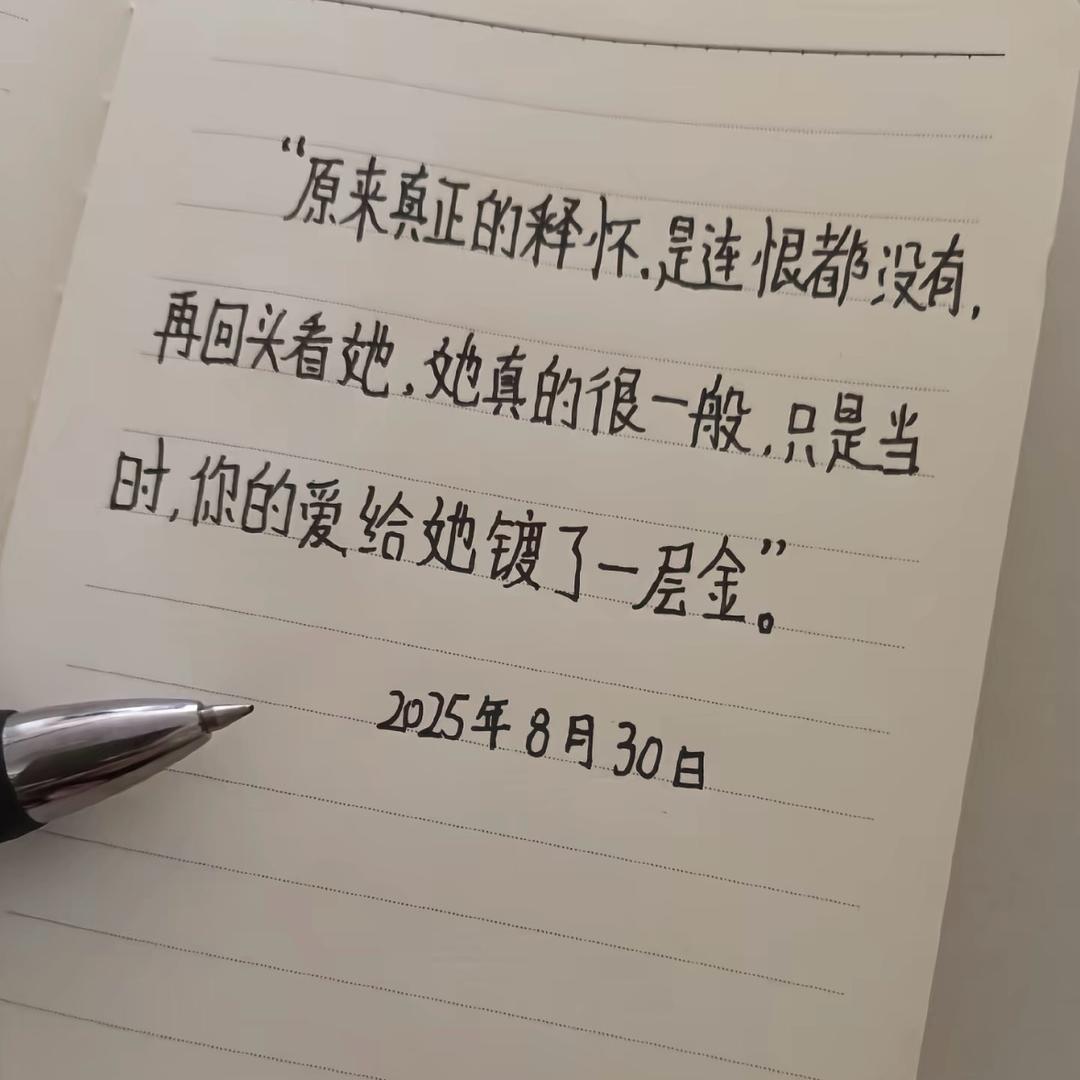 “原来真正的释怀.是连恨都没有,
再回头看她,她真的很一般,只是当
时,你的爱给她镀了一层金”。
2025年8月30日